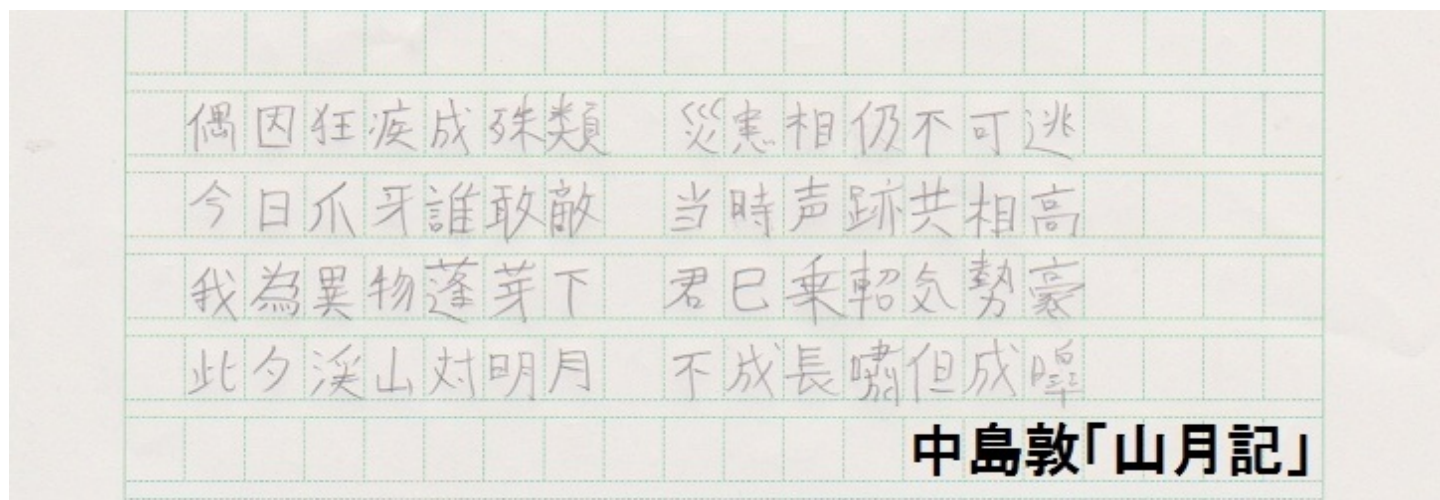 偶因狂疾成殊類　災患相仍不可逃
今日爪牙誰敢敵　当時声跡共相高
我為異物蓬芽下　君已乗軺気勢豪
此夕渓山対明月　不成長嘯但成嘷
中島敦「山月記」